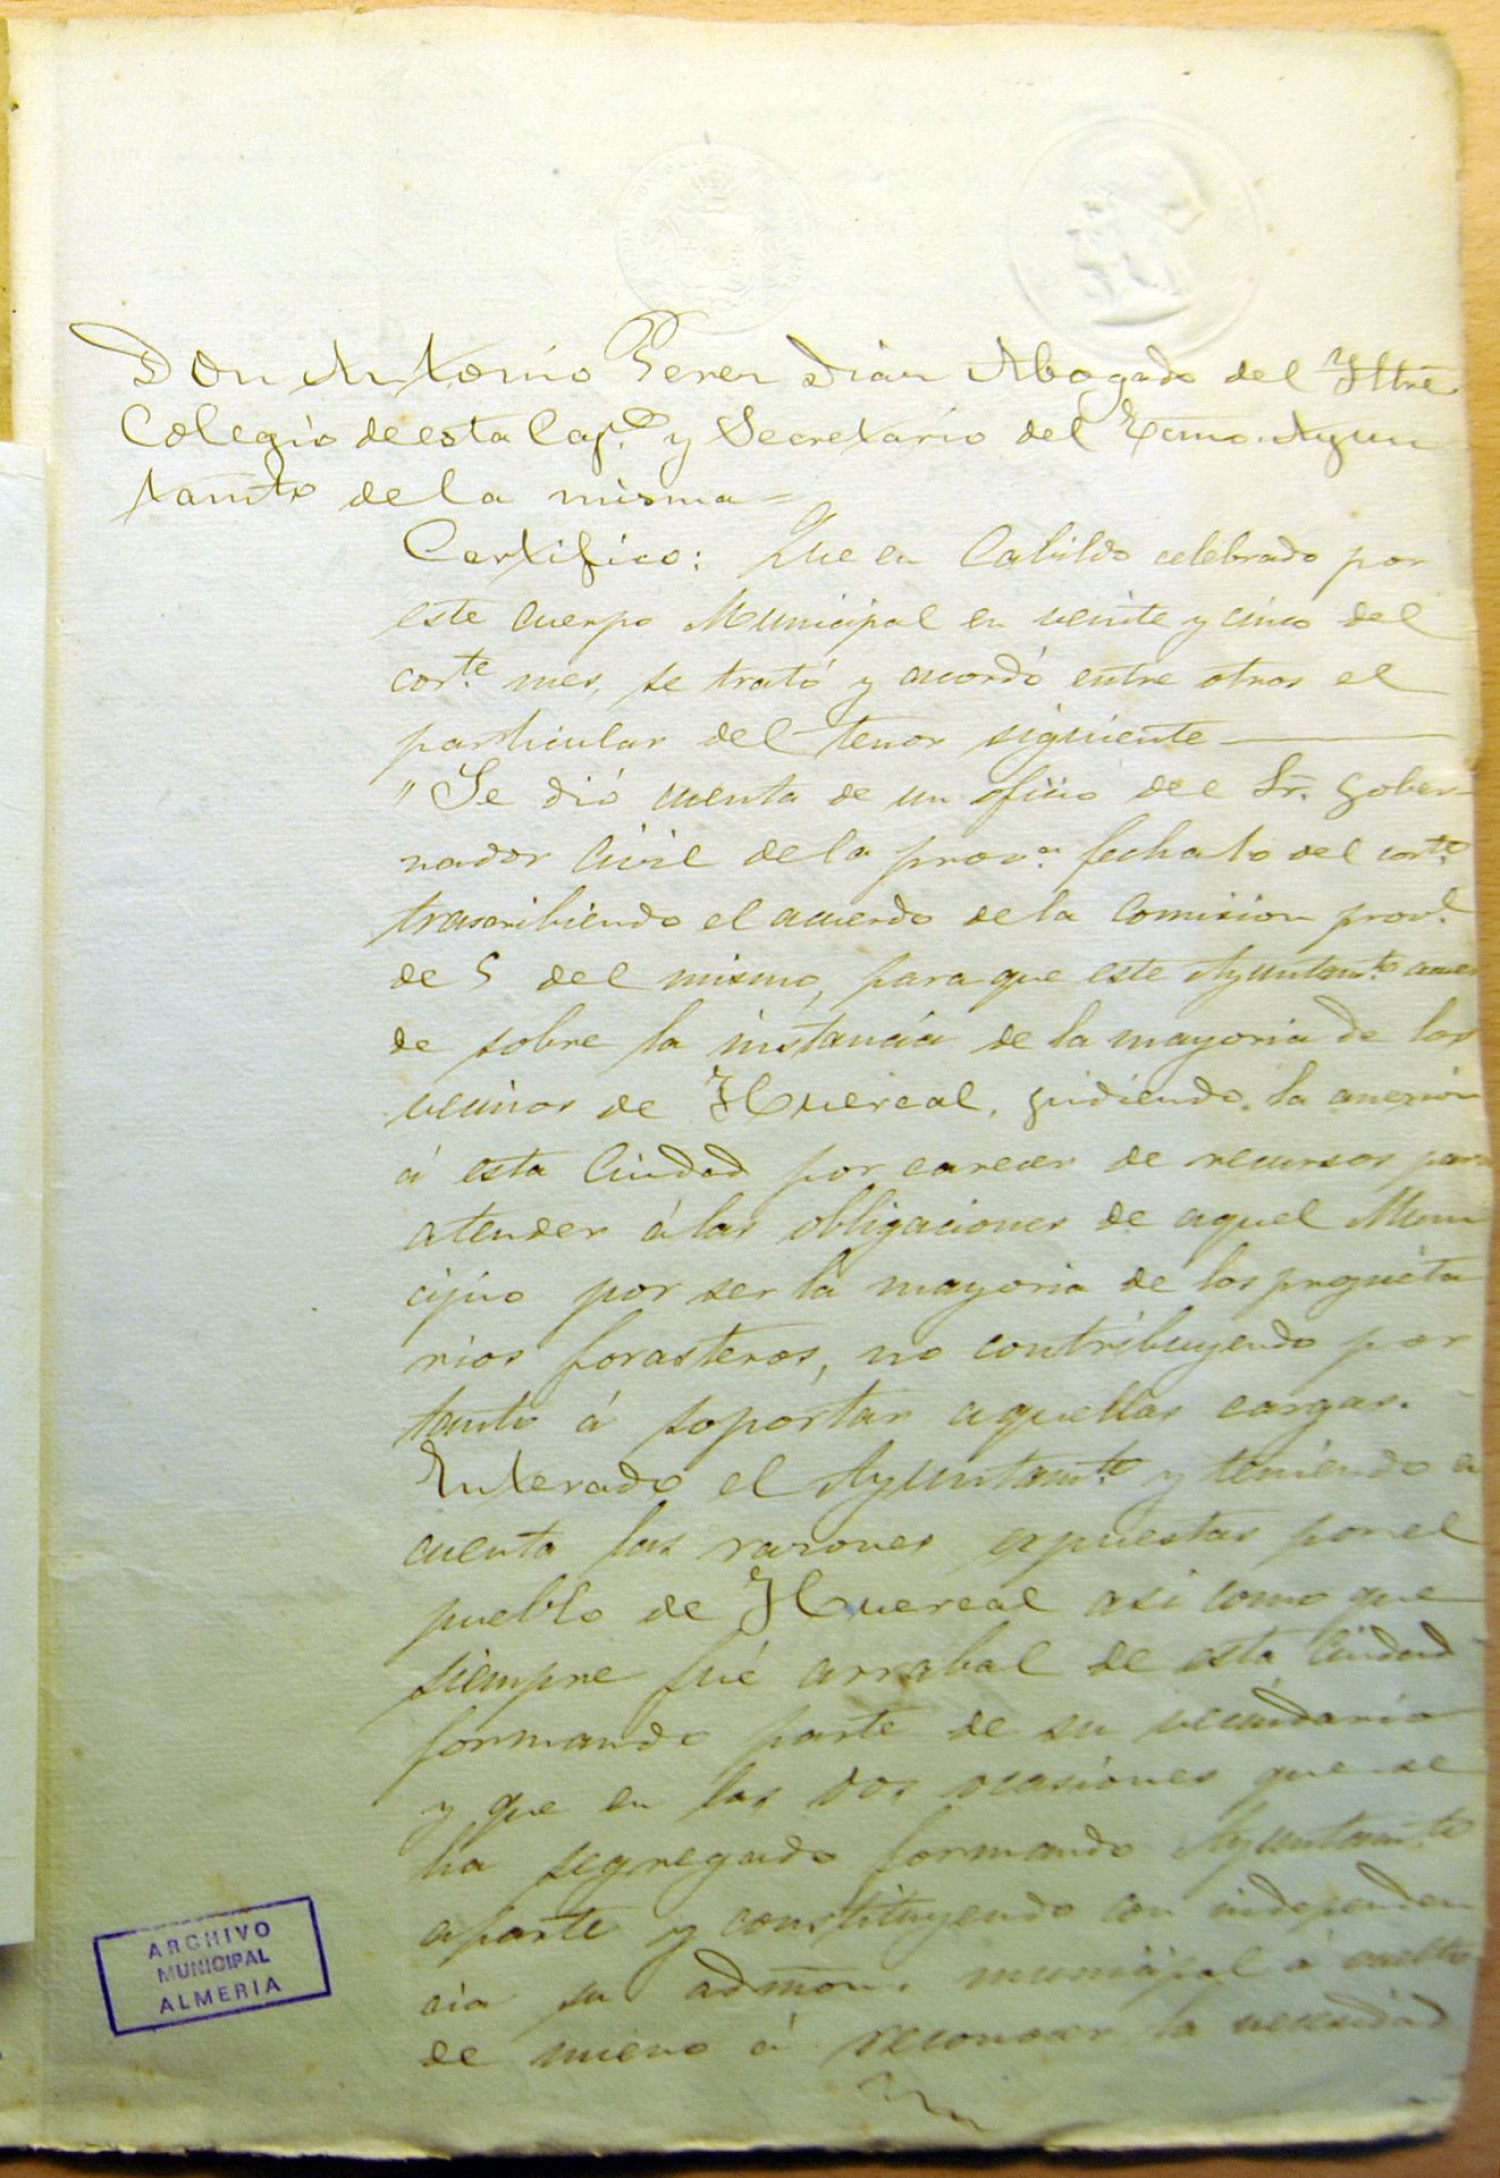 Don Antonio Perez Diaz Abogado del Iltre
Colegio de esta Cap.l y Secretario del Ecmo. Ayun
tamto de la misma=
Certifico: Que en Cabildo celebrado por
este Cuerpo Municipal en veinte y cinco del
corte. mes, se trató y acordó entre otros el
particular del tenor siguiente
"Se dió cuenta de un oficio del Sr. Gober-
nador Civil de la prova. fecha 10 del corte.
trascribiendo el acuerdo de la Comision provl.
de 5 del mismo, para que este Ayuntamto. acuer
de sobre la instancia de la mayoria de los
vecinos de Huercal, pidiendo la anexion
á esta Ciudad por carecer de recursos para
atender á las obligaciones de aquel Muni
cipio por ser la mayoria de los propieta
rios forasteros, no contribuyendo por
tanto á soportar aquellas cargas.
Enterado el Ayuntamto. y teniendo en
cuenta las razones expuestas por el
pueblo de Huercal asi como que
siempre fué arrabal de esta Ciudad
formando parte de su vecindario
y que en las dos ocasiones que se
ha segregado formando Ayuntamto
aparte y constituyendo con independen
cia su admon. municipal á vuelto
de nuevo á reconocer la necesidad
ARCHIVO
MUNICIPAL
ALMERIA